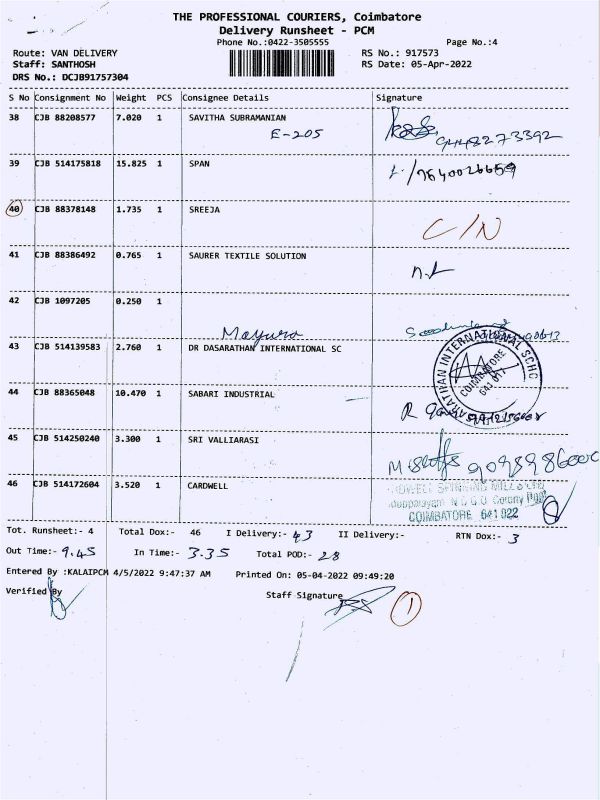 THE PROFESSIONAL COURIERS, Coimbatore
Delivery Runsheet - PCM
Phone No.:0422-3505555
Page No.:4
Route: VAN DELIVERY
RS No.: 917573
Staff: SANTHOSH
RS Date: 05-Apr-2022
DRS No.: DCJB91757304
S No Consignment No Weight PCS Consignee Details Signature
38 CJB 88208577 7.020 1 SAVITHA SUBRAMANIAN
E-205
9448273392
39 CJB 514175818 15.825 1 SPAN
40 CJB 88378148 1.735 1 SREEJA
C/N
41 CJB 88386492 0.765 1 SAURER TEXTILE SOLUTION
42 CJB 1097205 0.250 1
Mayura
43 CJB 514139583 2.760 1 DR DASARATHAN INTERNATIONAL SC
COIMBATORE
44 CJB 88365048 10.470 1 SABARI INDUSTRIAL
45 CJB 514250240 3.300 1 SRI VALLIARASI
46 CJB 514172604 3.520 1 CARDWELL
COIMBATORE 641 022
Tot. Runsheet:- 4 Total Dox:- 46 I Delivery:- 43 II Delivery:- RTN Dox:- 3
Out Time:- 9.45 In Time:- 3.35 Total POD:- 28
Entered By :KALAIPCM 4/5/2022 9:47:37 AM Printed On: 05-04-2022 09:49:20
Verified By
Staff Signature
1